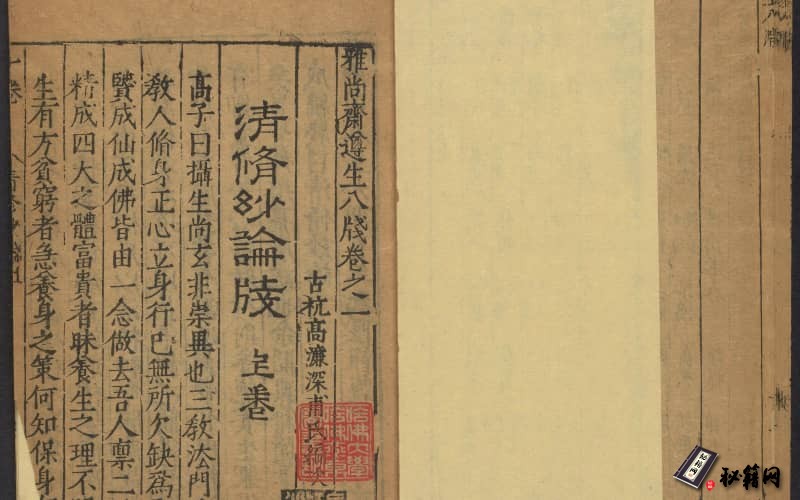 雅尚齋遵生八牋卷之二
古杭高濂深甫氏編
清脩妙論牋 上卷
高子曰攝生尚玄非崇異也三教法門
教人脩身正心立身行己無所欠缺爲
賢成仙成佛皆由一念做去吾人禀二
精成四大之體富貴者昧養生之理不
生有方貧窮者急養身之策何知保身
秘籍网